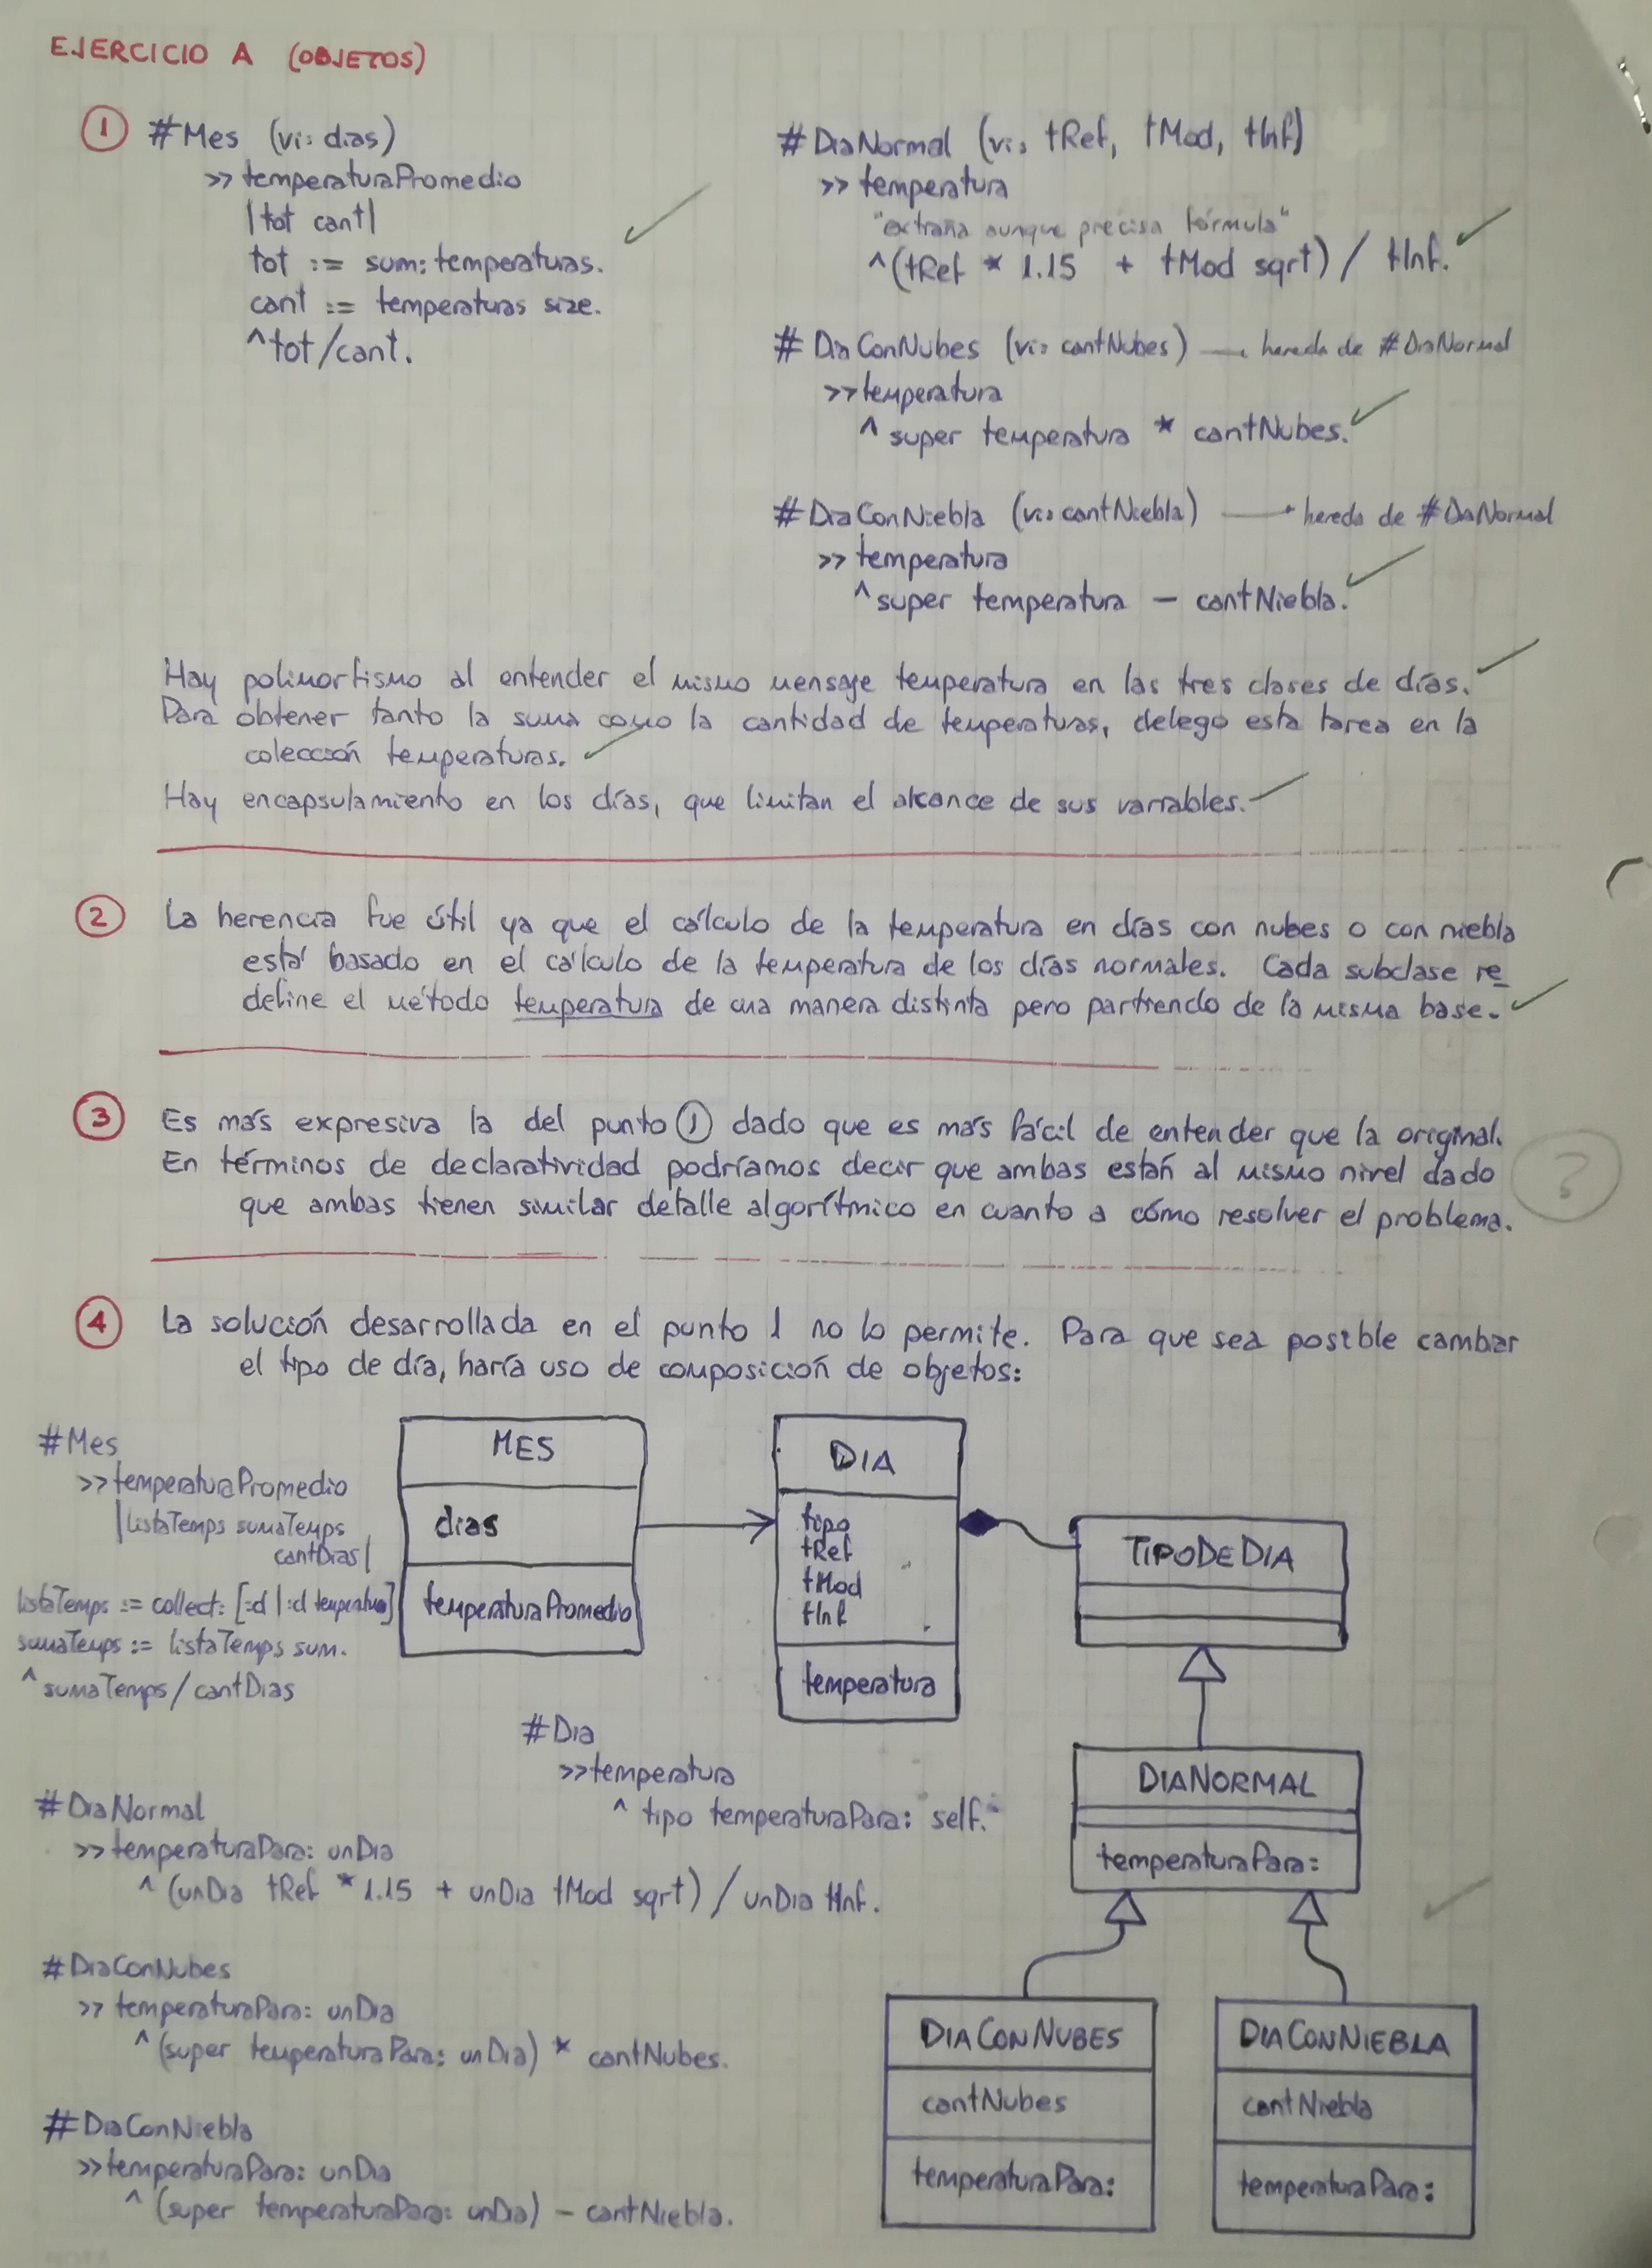 EJERCICIO A (OBJETOS)
① #Mes (vi: dias)
>> temperaturaPromedio
|tot cant|
tot := sum: temperaturas.
cant := temperaturas size.
^tot/cant.
#DiaNormal (vi: tRef, tMod, tInf)
>> temperatura
"extraña aunque precisa fórmula"
^(tRef * 1.15 + tMod sqrt) / tInf.
#DiaConNubes (vi: cantNubes) → hereda de #DiaNormal
>> temperatura
^ super temperatura * cantNubes.
#DiaConNiebla (vi: cantNiebla) → hereda de #DiaNormal
>> temperatura
^ super temperatura - cantNiebla.
Hay polimorfismo al entender el mismo mensaje temperatura en las tres clases de días.
Para obtener tanto la suma como la cantidad de temperaturas, delego esta tarea en la
colección temperaturas.
Hay encapsulamiento en los días, que limitan el alcance de sus variables.
② La herencia fue útil ya que el cálculo de la temperatura en días con nubes o con niebla
está basado en el cálculo de la temperatura de los días normales. Cada subclase re
define el método temperatura de una manera distinta pero partiendo de la misma base.
③ Es más expresiva la del punto ① dado que es más fácil de entender que la original.
En términos de declaratividad podríamos decir que ambas están al mismo nivel dado
que ambas tienen similar detalle algorítmico en cuanto a cómo resolver el problema.
?
④ La solución desarrollada en el punto 1 no lo permite. Para que sea posible cambiar
el tipo de día, haría uso de composición de objetos:
#Mes
>> temperaturaPromedio
|listaTemps sumaTemps
cantDias|
listaTemps := collect: [:d | :d temperatura]
sumaTemps := listaTemps sum.
^ sumaTemps / cantDias
MES
dias
temperaturaPromedio
DIA
tipo
tRef
tMod
tInf
temperatura
TIPODEDIA
#Dia
>> temperatura
^ tipo temperaturaPara: self.
DIANORMAL
temperaturaPara:
#DiaNormal
>> temperaturaPara: unDia
^ (unDia tRef * 1.15 + unDia tMod sqrt) / unDia tInf.
#DiaConNubes
>> temperaturaPara: unDia
^ (super temperaturaPara: unDia) * cantNubes.
#DiaConNiebla
>> temperaturaPara: unDia
^ (super temperaturaPara: unDia) - cantNiebla.
DIACONNUBES
cantNubes
temperaturaPara:
DIACONNIEBLA
cantNiebla
temperaturaPara: